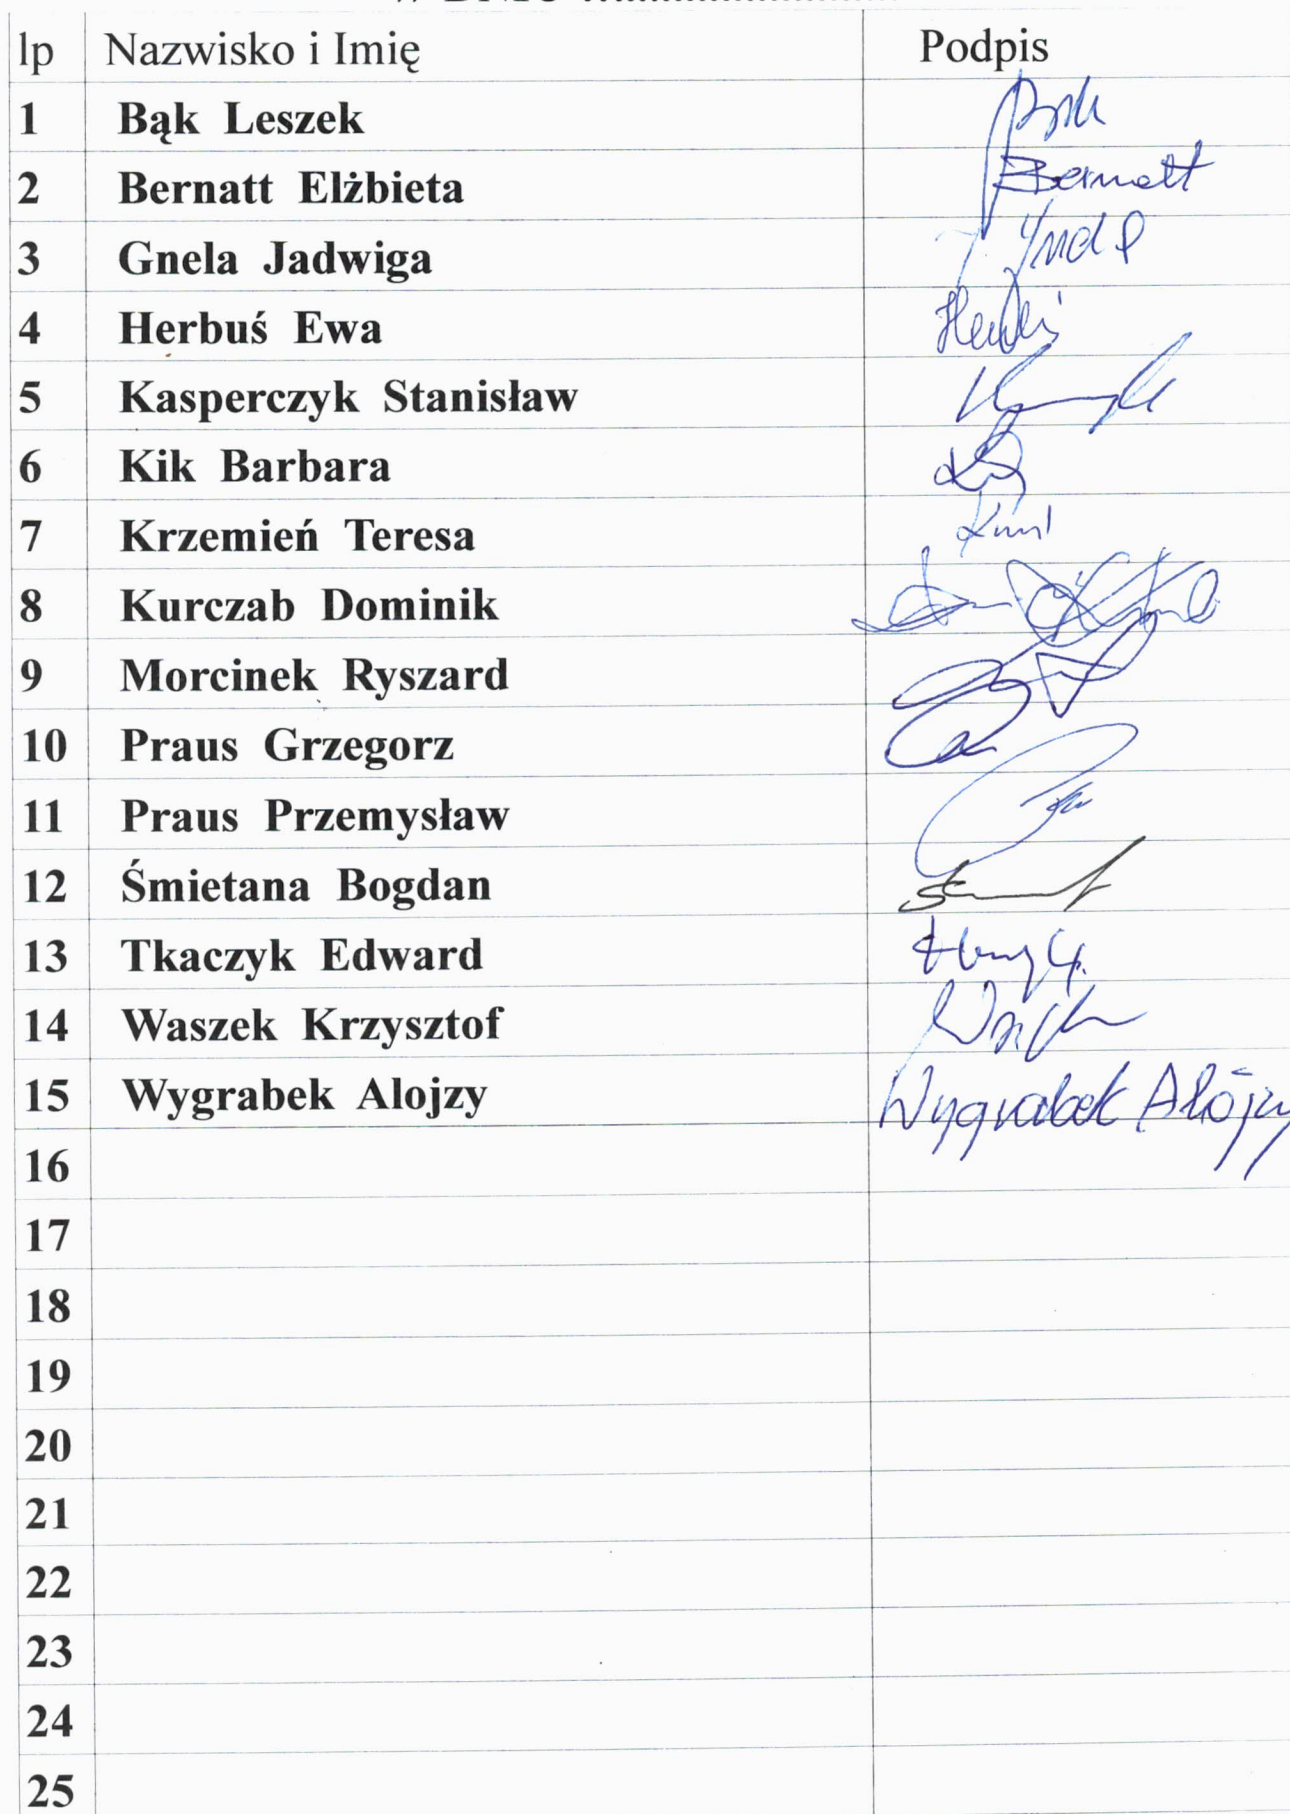 W DNIU ................................
lp Nazwisko i Imię Podpis
1 Bąk Leszek
2 Bernatt Elżbieta Bernatt
3 Gnela Jadwiga
4 Herbuś Ewa
5 Kasperczyk Stanisław
6 Kik Barbara
7 Krzemień Teresa
8 Kurczab Dominik
9 Morcinek Ryszard
10 Praus Grzegorz
11 Praus Przemysław
12 Śmietana Bogdan
13 Tkaczyk Edward
14 Waszek Krzysztof
15 Wygrabek Alojzy Wygrabek Alojzy
16
17
18
19
20
21
22
23
24
25